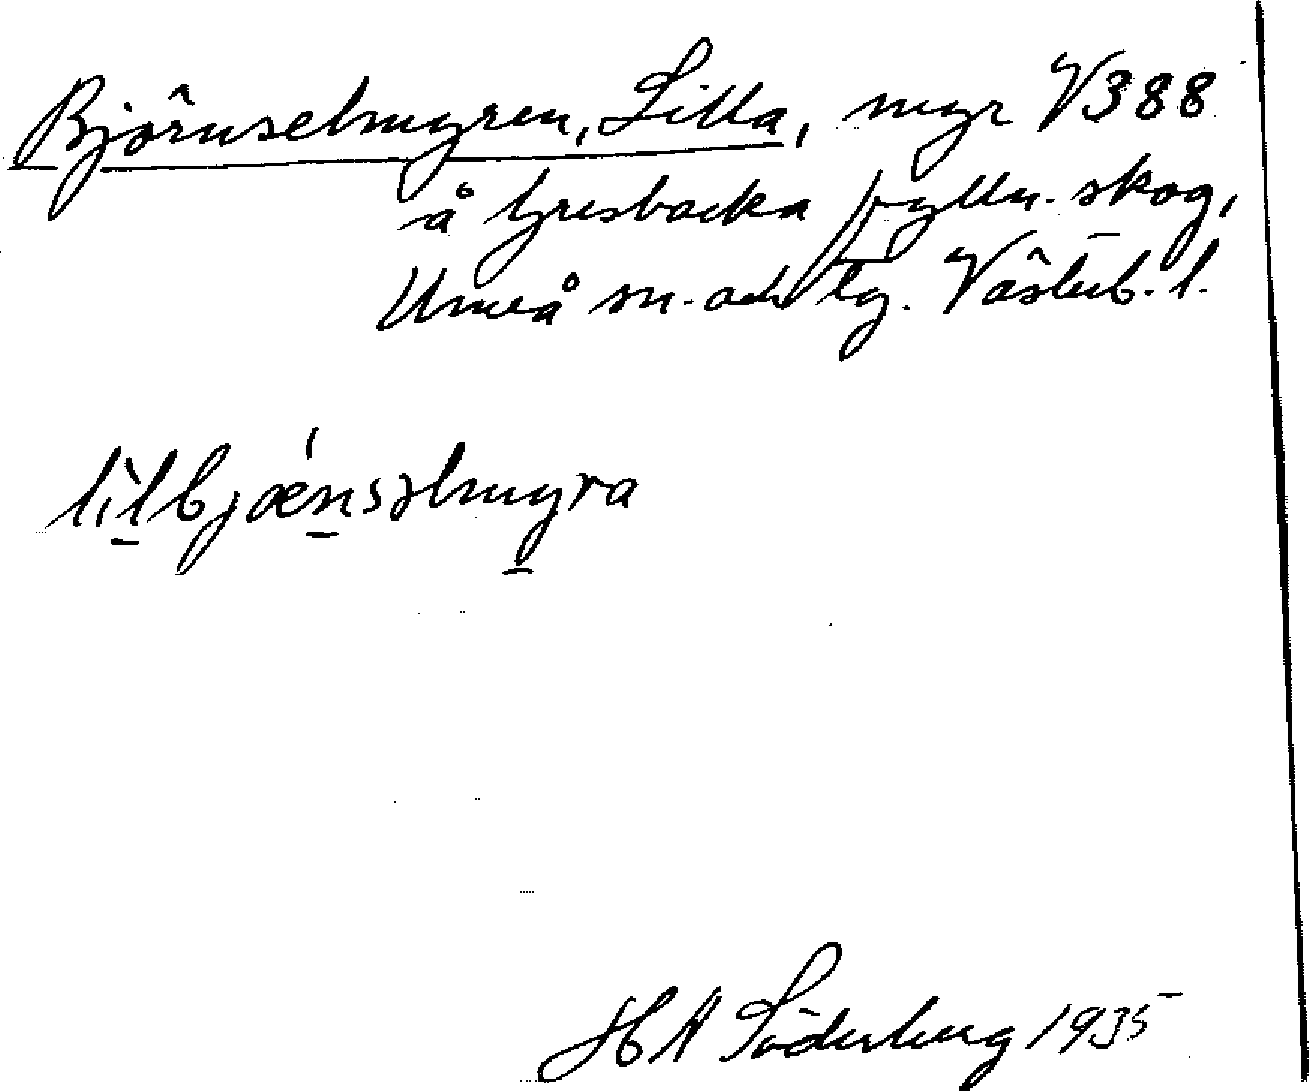 Björnselmyren, Lilla, myr V388
å Gresbäcka fylln. skog,
Umeå sn. och tg. Västerb. l.
lilbjǽnsəlmyra
H A Söderberg 1935